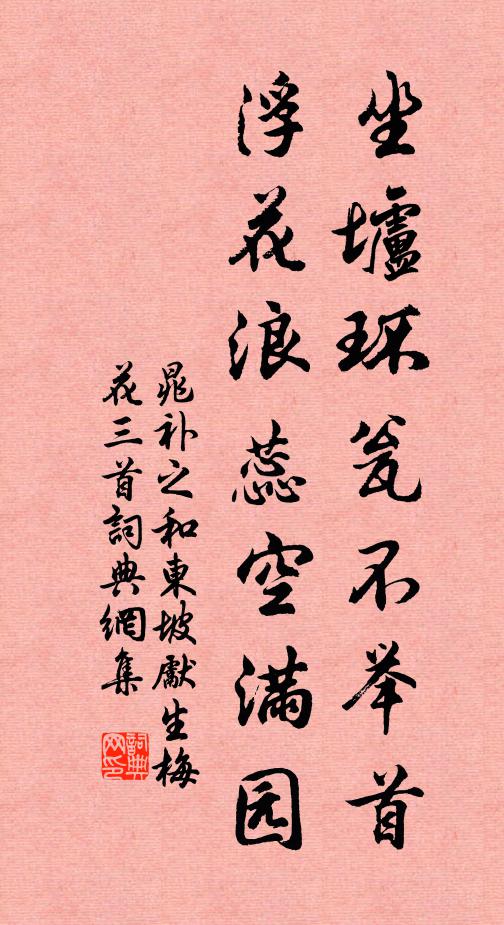 坐壚环瓮不举首
浮花浪蕊空满园
晁补之和東坡獻生梅
花三首詞典網集
詞典
网印